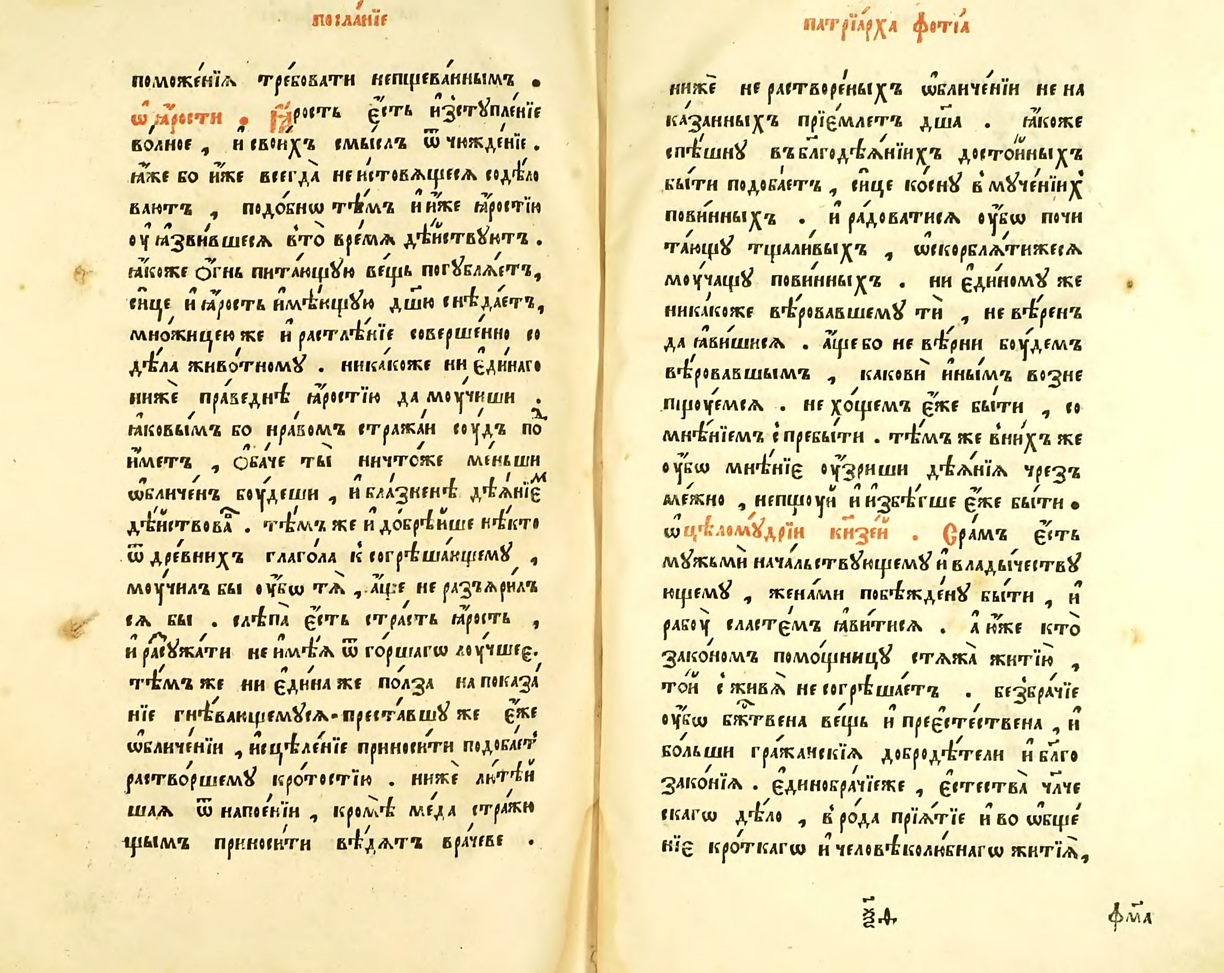 посла́нїе
поможе́нїѧ тре́бовати непщева́ннымъ .
ѡ҆ ꙗ҆́рости . Ꙗ҆́рость є҆́сть и҆зступле́нїе
во́лное , и҆ свои́хъ смы́слъ ѿчꙋжде́нїе .
ꙗ҆́же бо и҆́же всегда̀ неи́стовѧщеесѧ содѣ́ло
ваютъ , подо́бнѡ тѣ́мъ и҆ и҆́же ꙗ҆́ростїю
оу҆ꙗзви́вшеесѧ в̾то̀ вре́мѧ дѣ́йствꙋютъ .
ꙗ҆́коже ѻ҆́гнь пита́ющꙋю ве́щь погꙋблѧ́етъ,
си́це и҆ ꙗ҆́рость и҆мѣ́ющꙋю дш҃ꙋ снѣда́етъ,
мно́жицею же и҆ растлѣ́нїе соверше́нно со
дѣ́ла живо́тномꙋ . ника́коже ни є҆ди́наго
нижѐ пра́веднѣ ꙗ҆́ростїю да моу́чиши .
ꙗ҆ковы́мъ бо нра́вомъ стра́жай соу́дъ под̾
и҆́метъ , ѻ҆ба́че ты̀ ничто́же ме́ньши
ѡ҆бличе́нъ боу́деши , и҆ бла́зненѣ дѣѧ́нїем̾
дѣ́йствова́в . тѣ́мъ же и҆ добрѣ́йше нѣ́кто
ѿ дре́внихъ глаго́ла к̾согрѣша́ющемꙋ ,
моу́чилъ бы оу҆́бѡ тѧ̀ , а҆́ще не разъѧри́лъ
сѧ бы . слѣпа̀ є҆́сть стра́сть ꙗ҆́рость ,
и҆ расꙋжа́ти не и҆мѣ́ѧ ѿ го́ршагѡ лоу́чшее.
тѣ́мъ же ни є҆ди́на же по́лза на показа́
нїе гнѣ́вающемꙋсѧ . преста́вшꙋ же є҆́же
ѡ҆бличе́нїи , и҆сцѣле́нїе приноси́ти подоба́ет̾
раство́ршемꙋ кро́тостїю . нижѐ лютѣ́й
шаѧ ѿ напое́нїи , кромѣ̀ ме́да стра́жю
щымъ приноси́ти вѣ́дѧтъ вра́чеве .
патрїа́рха фо́тїа
нижѐ не растворе́ныхъ ѡ҆бличе́нїи не на
ка́занныхъ прїе́млетъ дш҃а . ꙗ҆́коже
спѣ́шнꙋ въ бл҃годѣѧ́нїихъ досто́йныхъ
бы́ти подоба́етъ , си́це ко́снꙋ в̾ мꙋче́нїих̾
пови́нныхъ . и҆ ра́доватисѧ оу҆́бѡ почи
та́ющꙋ тщали́выхъ , ѡ҆скорблѧ́тижесѧ
моу́чащꙋ пови́нныхъ . ни є҆ди́номꙋ же
ника́коже вѣ́ровавшемꙋ тѝ , не вѣ́ренъ
да ꙗ҆ви́шисѧ . а҆́ще бо не вѣ́рни боу́демъ
вѣ́ровавшымъ , какови̾ и҆ны́мъ возне
пщоу́емсѧ . не хо́щемъ є҆́же бы́ти , со
мнѣ́нїемъ с̾пребы́ти . тѣ́мъ же в̾ни́хъ же
оу҆́бѡ мнѣ́нїе оу҆́зриши дѣѧ́нїѧ чрезъ
ле́жно , непщоу́й и҆ и҆збѣ́гше є҆́же бы́ти .
ѡ҆ цѣломꙋ́дрїи кн҃зе́й . Сра́мъ є҆́сть
мꙋжьмѝ нача́льствꙋющемꙋ и҆ влады́чествꙋ
ющемꙋ , жена́ми побѣжде́нꙋ бы́ти , и҆
рабоу̀ сласте́мъ ꙗ҆ви́тисѧ . а҆ и҆́же кто̀
зако́номъ помо́щницꙋ стѧжа̀ житїю̀ ,
то́й с̾ живѧ̀ не согрѣша́етъ . безбра́чїе
оу҆́бѡ бж҃твена ве́щь и҆ прее҆сте́ствена , и҆
бо́льши гражда́нскїѧ добродѣ́тели и҆ бл҃го
зако́нїѧ . є҆динобра́чїеже , є҆стества̀ чл҃че
скагѡ дѣ́ло , в̾ ро́да прїѧ́тїе и҆ во ѡ҆бще́
нїе кро́ткагѡ и҆ человѣколю́бнагѡ житїѧ̀,
фм҃а